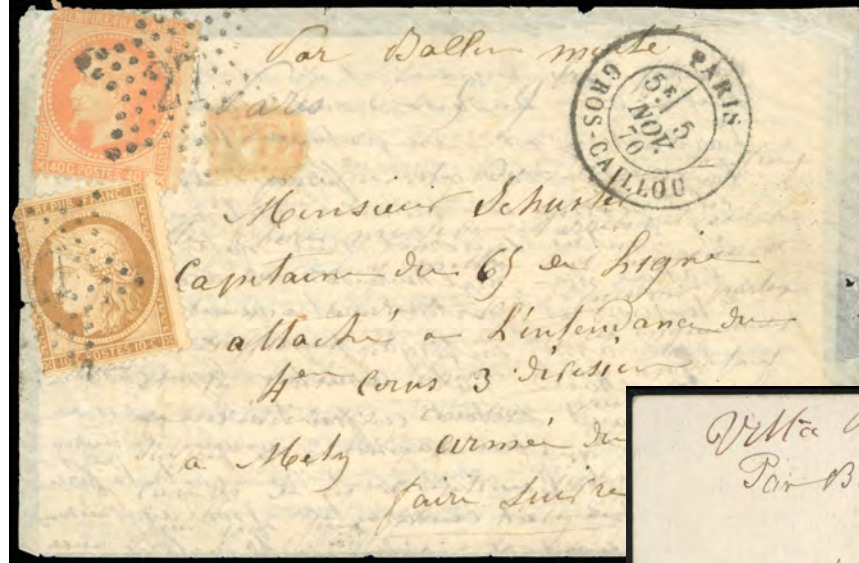 EMPIRE FRAN
40 C POSTES 40 C
REPUB. FRANC.
10 C. POSTES 10 C.
Par Ballon monté
Paris
PARIS
5E 5
NOV.
70
GROS-CAILLOU
Monsieur Schuster
Capitaine du 65 de Ligne
attaché a L'intendance du
4me Corps 3 division
a Metz armée du
faire suivre
Par B